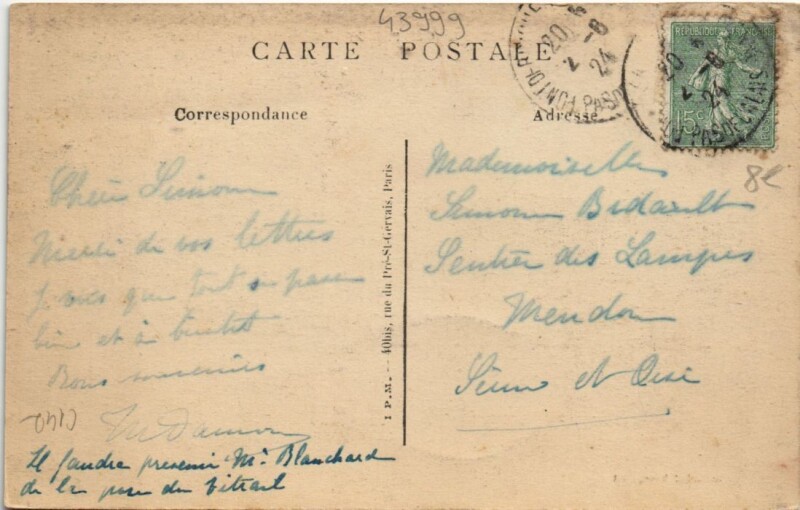 43999
CARTE POSTALE
Correspondance
Adresse
REPUBLIQUE FRANÇAISE
15c
20
2-8
24
PAS DE CALAIS
8€
Chère Simone
Merci de vos lettres
Je vois que tout se passe
bien et à bientôt
Bons souvenirs
C140
Il faudra prévenir Mr. Blanchard
de la pose du vitrail
I P. M. — 40bis, rue du Pré-St-Gervais, Paris
Mademoiselle
Simone Bidault
Sentier des Lampes
Meudon
Seine et Oise